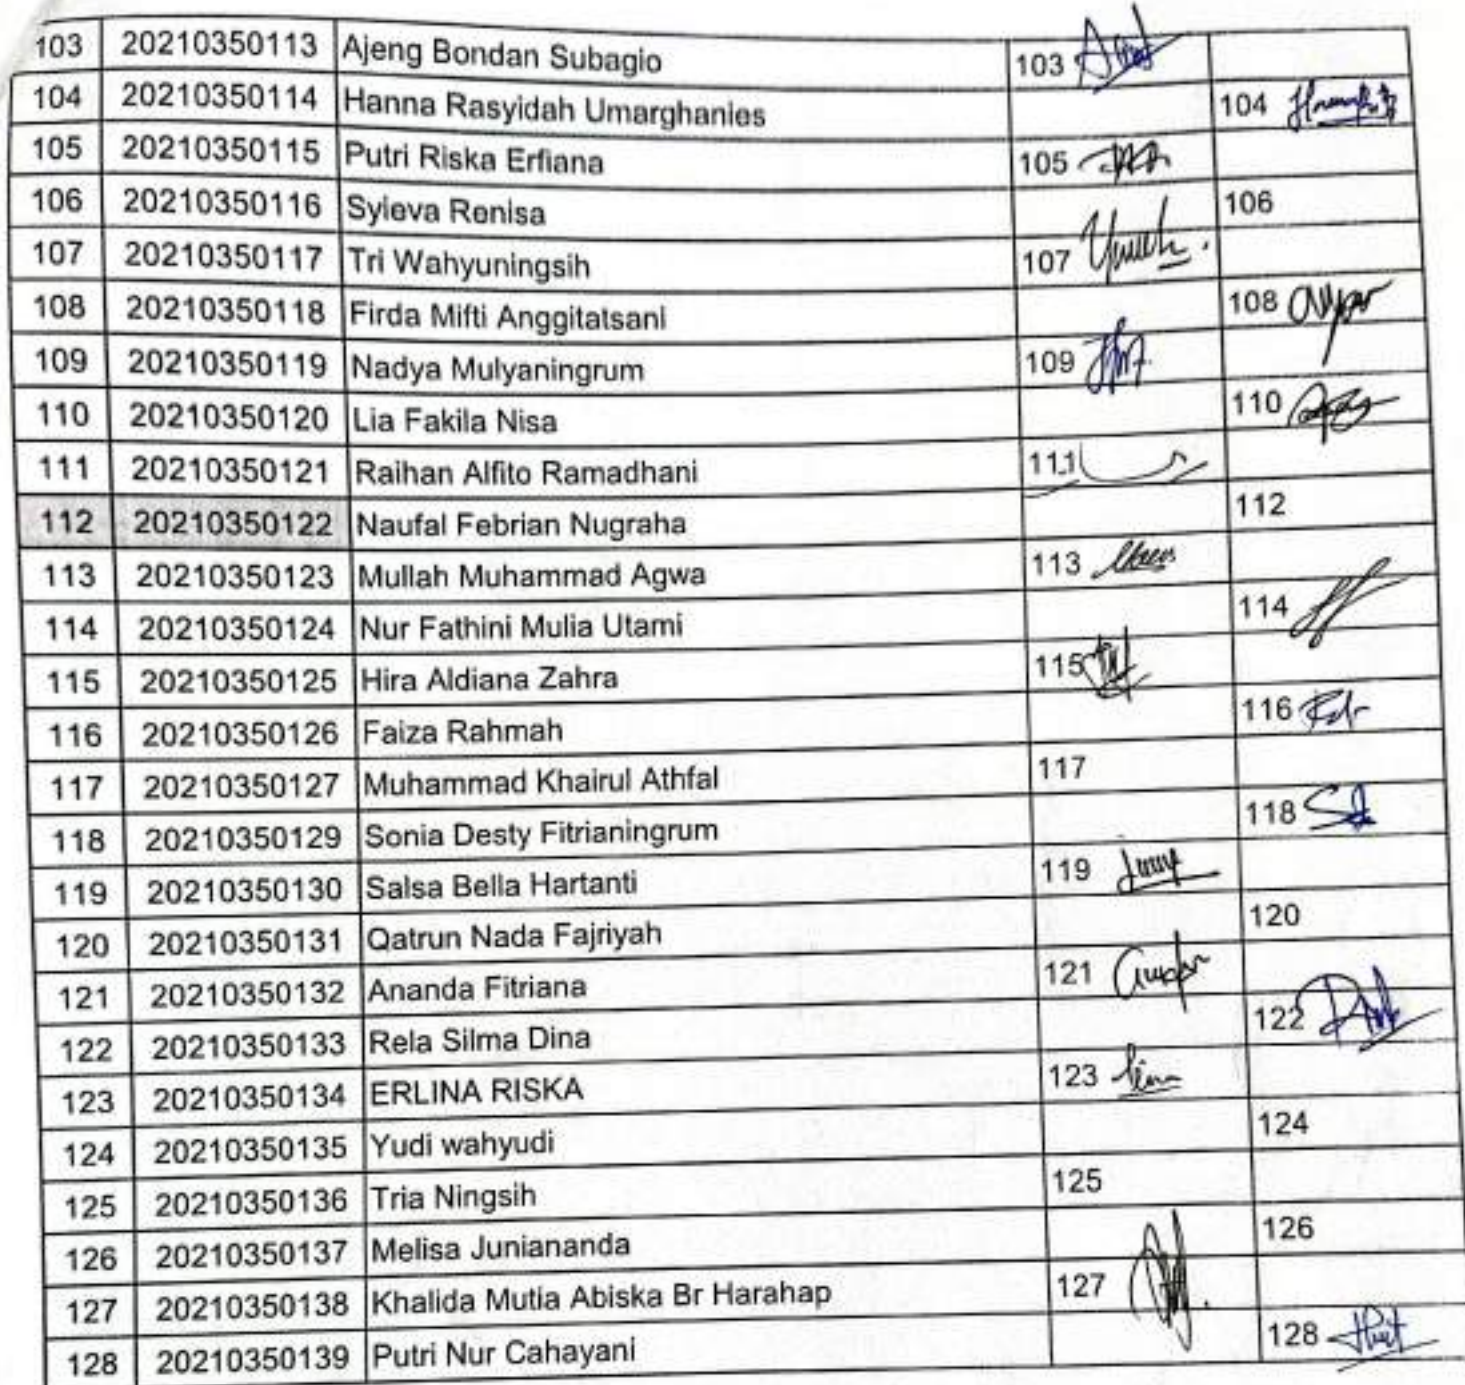 103 20210350113 Ajeng Bondan Subagio 103
104 20210350114 Hanna Rasyidah Umarghanies 104
105 20210350115 Putri Riska Erfiana 105
106 20210350116 Syleva Renisa 106
107 20210350117 Tri Wahyuningsih 107
108 20210350118 Firda Mifti Anggitatsani 108
109 20210350119 Nadya Mulyaningrum 109
110 20210350120 Lia Fakila Nisa 110
111 20210350121 Raihan Alfito Ramadhani 111
112 20210350122 Naufal Febrian Nugraha 112
113 20210350123 Mullah Muhammad Agwa 113
114 20210350124 Nur Fathini Mulia Utami 114
115 20210350125 Hira Aldiana Zahra 115
116 20210350126 Faiza Rahmah 116
117 20210350127 Muhammad Khairul Athfal 117
118 20210350129 Sonia Desty Fitrianingrum 118
119 20210350130 Salsa Bella Hartanti 119
120 20210350131 Qatrun Nada Fajriyah 120
121 20210350132 Ananda Fitriana 121
122 20210350133 Rela Silma Dina 122
123 20210350134 ERLINA RISKA 123
124 20210350135 Yudi wahyudi 124
125 20210350136 Tria Ningsih 125
126 20210350137 Melisa Juniananda 126
127 20210350138 Khalida Mutia Abiska Br Harahap 127
128 20210350139 Putri Nur Cahayani 128